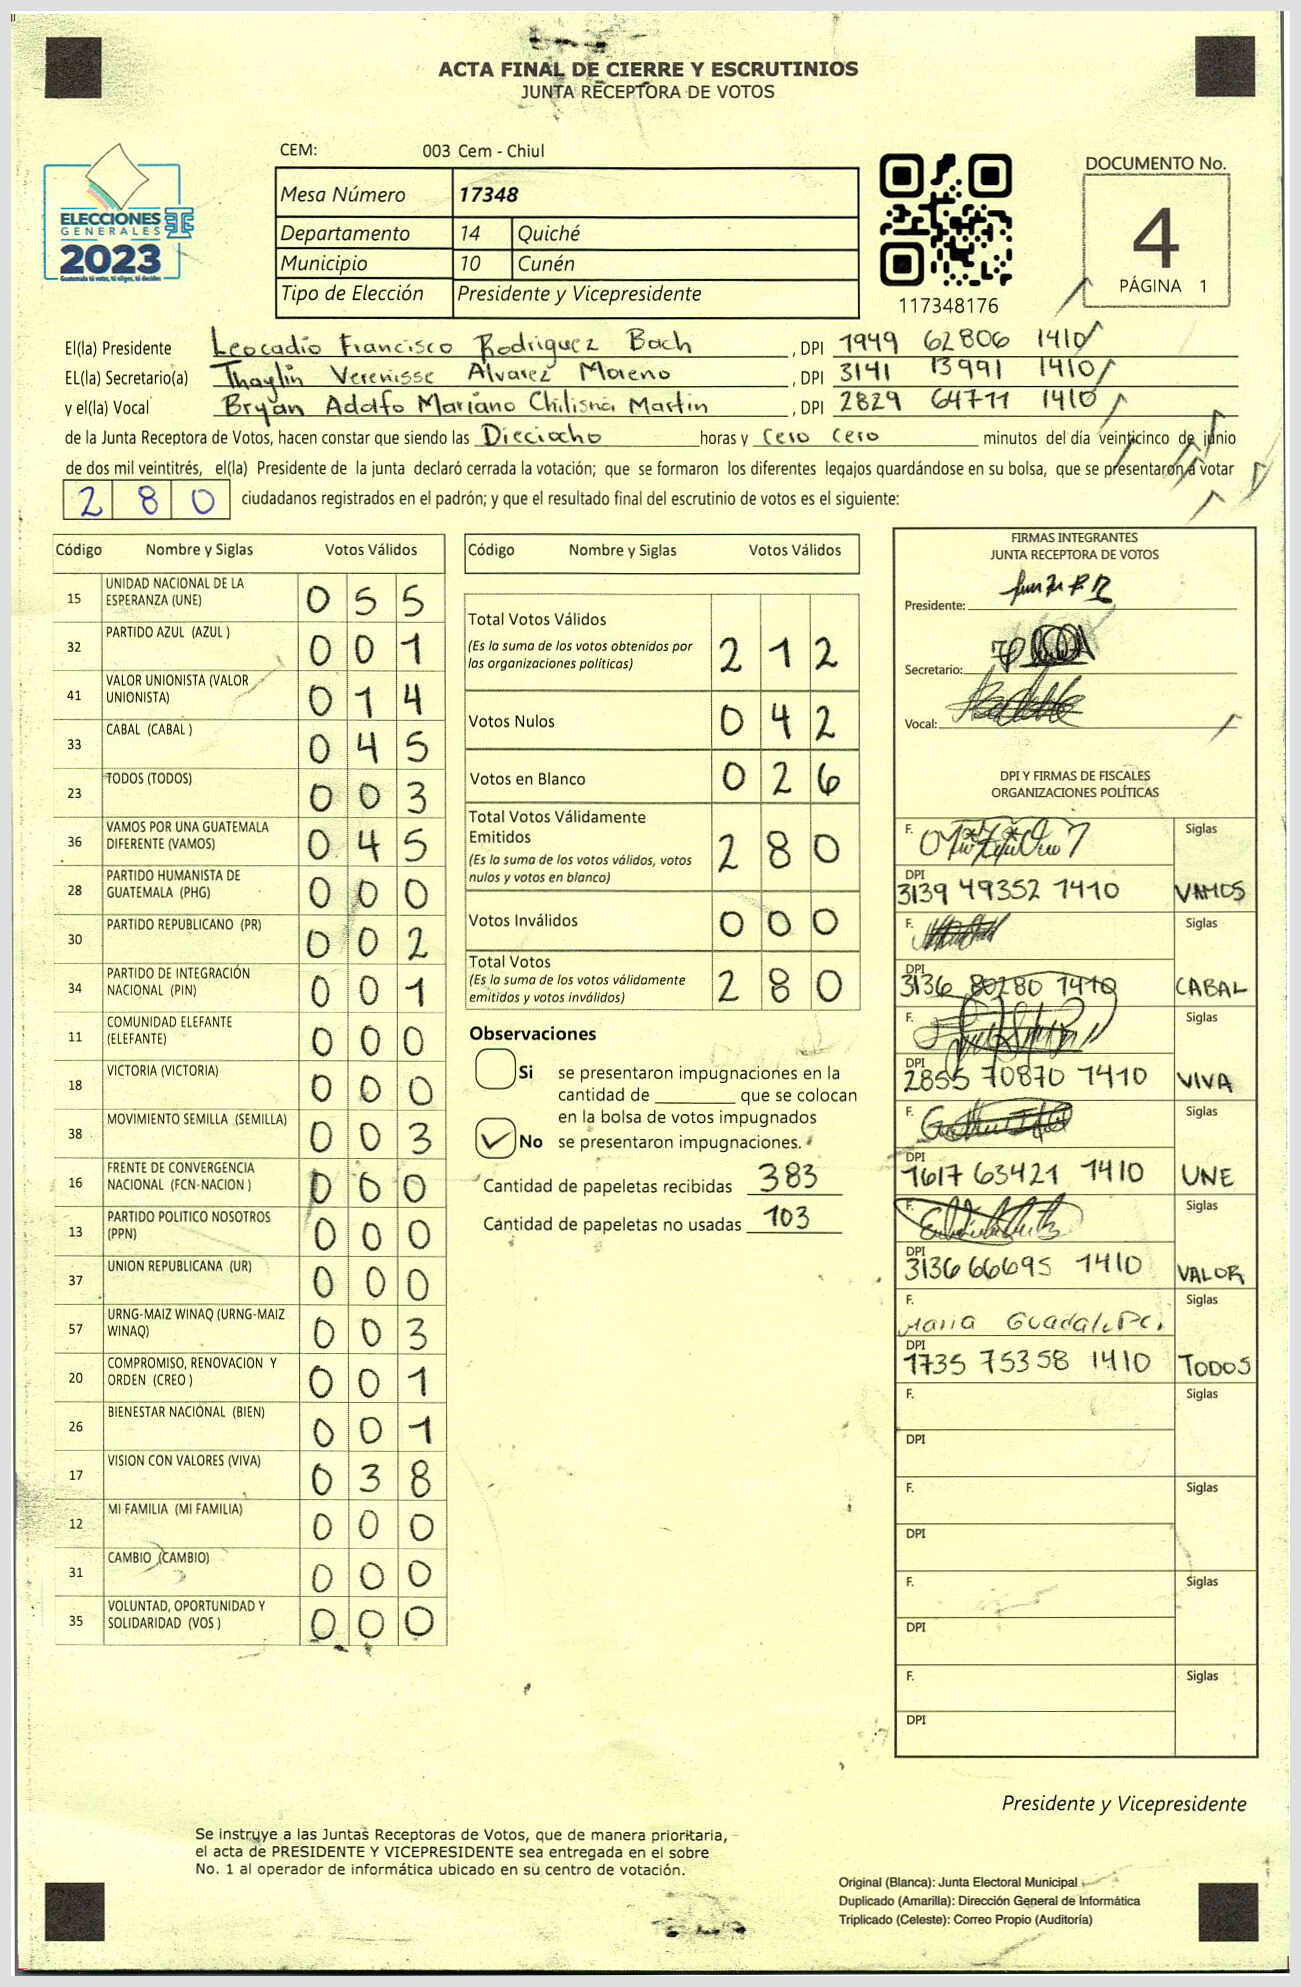 ACTA FINAL DE CIERRE Y ESCRUTINIOS
JUNTA RECEPTORA DE VOTOS
ELECCIONES
GENERALES
2023
Guatemala tú votas, tú eliges, tú decides
CEM: 003 Cem - Chiul
Mesa Número 17348
Departamento 14 Quiché
Municipio 10 Cunén
Tipo de Elección Presidente y Vicepresidente
117348176
DOCUMENTO No.
4
PÁGINA 1
El(la) Presidente Leocadio Francisco Rodriguez Bach , DPI 1949 62806 1410
EL(la) Secretario(a) Thaylin Verenisse Alvarez Moreno , DPI 3141 13991 1410
y el(la) Vocal Bryan Adolfo Mariano Chilisna Martin , DPI 2829 64711 1410
de la Junta Receptora de Votos, hacen constar que siendo las Dieciocho horas y cero cero minutos del día veinticinco de junio
de dos mil veintitrés, el(la) Presidente de la junta declaró cerrada la votación; que se formaron los diferentes legajos guardándose en su bolsa, que se presentaron a votar
280 ciudadanos registrados en el padrón; y que el resultado final del escrutinio de votos es el siguiente:
Código Nombre y Siglas Votos Válidos
15 UNIDAD NACIONAL DE LA ESPERANZA (UNE) 0 5 5
32 PARTIDO AZUL (AZUL ) 0 0 1
41 VALOR UNIONISTA (VALOR UNIONISTA) 0 1 4
33 CABAL (CABAL ) 0 4 5
23 TODOS (TODOS) 0 0 3
36 VAMOS POR UNA GUATEMALA DIFERENTE (VAMOS) 0 4 5
28 PARTIDO HUMANISTA DE GUATEMALA (PHG) 0 0 0
30 PARTIDO REPUBLICANO (PR) 0 0 2
34 PARTIDO DE INTEGRACIÓN NACIONAL (PIN) 0 0 1
11 COMUNIDAD ELEFANTE (ELEFANTE) 0 0 0
18 VICTORIA (VICTORIA) 0 0 0
38 MOVIMIENTO SEMILLA (SEMILLA) 0 0 3
16 FRENTE DE CONVERGENCIA NACIONAL (FCN-NACION ) 0 0 0
13 PARTIDO POLITICO NOSOTROS (PPN) 0 0 0
37 UNION REPUBLICANA (UR) 0 0 0
57 URNG-MAIZ WINAQ (URNG-MAIZ WINAQ) 0 0 3
20 COMPROMISO, RENOVACION Y ORDEN (CREO ) 0 0 1
26 BIENESTAR NACIONAL (BIEN) 0 0 1
17 VISION CON VALORES (VIVA) 0 3 8
12 MI FAMILIA (MI FAMILIA) 0 0 0
31 CAMBIO (CAMBIO) 0 0 0
35 VOLUNTAD, OPORTUNIDAD Y SOLIDARIDAD (VOS ) 0 0 0
Código Nombre y Siglas Votos Válidos
Total Votos Válidos
(Es la suma de los votos obtenidos por
las organizaciones políticas) 2 1 2
Votos Nulos 0 4 2
Votos en Blanco 0 2 6
Total Votos Válidamente
Emitidos
(Es la suma de los votos válidos, votos
nulos y votos en blanco) 2 8 0
Votos Inválidos 0 0 0
Total Votos
(Es la suma de los votos válidamente
emitidos y votos inválidos) 2 8 0
Observaciones
Si se presentaron impugnaciones en la
cantidad de ________ que se colocan
en la bolsa de votos impugnados
No se presentaron impugnaciones.
Cantidad de papeletas recibidas 383
Cantidad de papeletas no usadas 103
FIRMAS INTEGRANTES
JUNTA RECEPTORA DE VOTOS
Presidente:
Secretario:
Vocal:
DPI Y FIRMAS DE FISCALES
ORGANIZACIONES POLÍTICAS
F. Siglas
DPI
3139 49352 1410 VAMOS
F. Siglas
DPI
3136 80280 1410 CABAL
F. Siglas
DPI
2855 70870 1410 VIVA
F. Siglas
DPI
1617 63421 1410 UNE
F. Siglas
DPI
3136 66695 1410 VALOR
F. Siglas
Maria
DPI
1735 75358 1410 TODOS
F. Siglas
DPI
F. Siglas
DPI
F. Siglas
DPI
F. Siglas
DPI
Presidente y Vicepresidente
Se instruye a las Juntas Receptoras de Votos, que de manera prioritaria,
el acta de PRESIDENTE Y VICEPRESIDENTE sea entregada en el sobre
No. 1 al operador de informática ubicado en su centro de votación.
Original (Blanca): Junta Electoral Municipal
Duplicado (Amarilla): Dirección General de Informática
Triplicado (Celeste): Correo Propio (Auditoría)